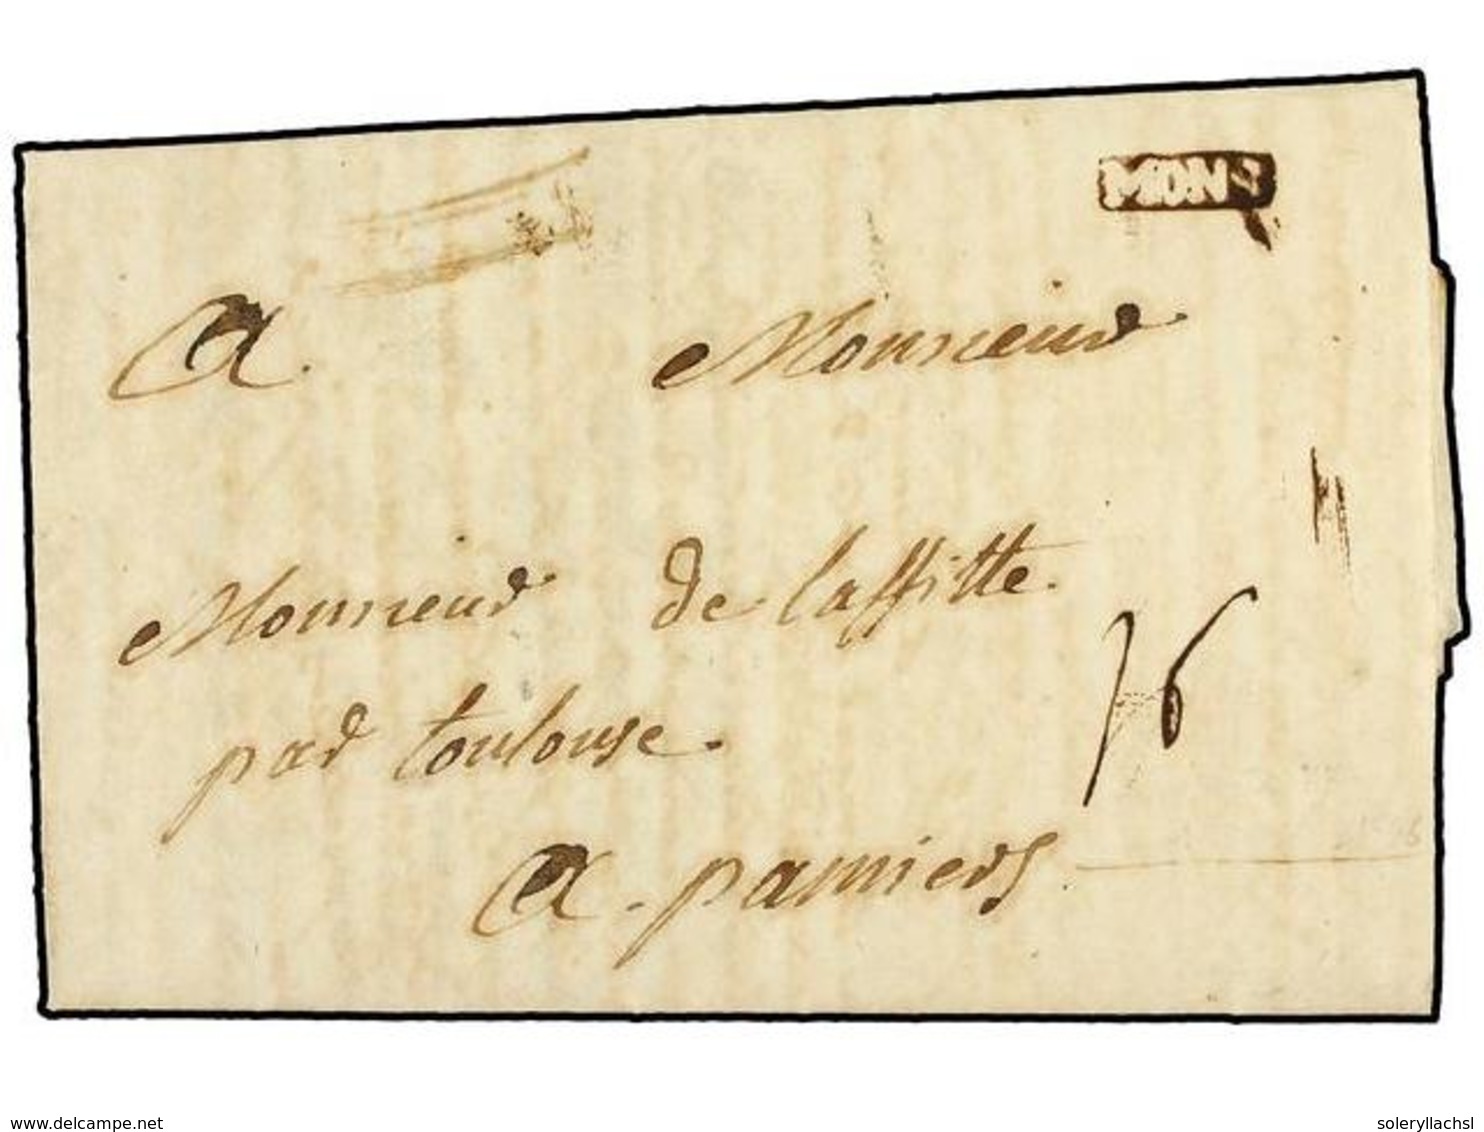 MONS
A. Monsieur
Monsieur de laffitte.
par toulouse.
16
A. pamiers
www.delcampe.net
soleryllachsl